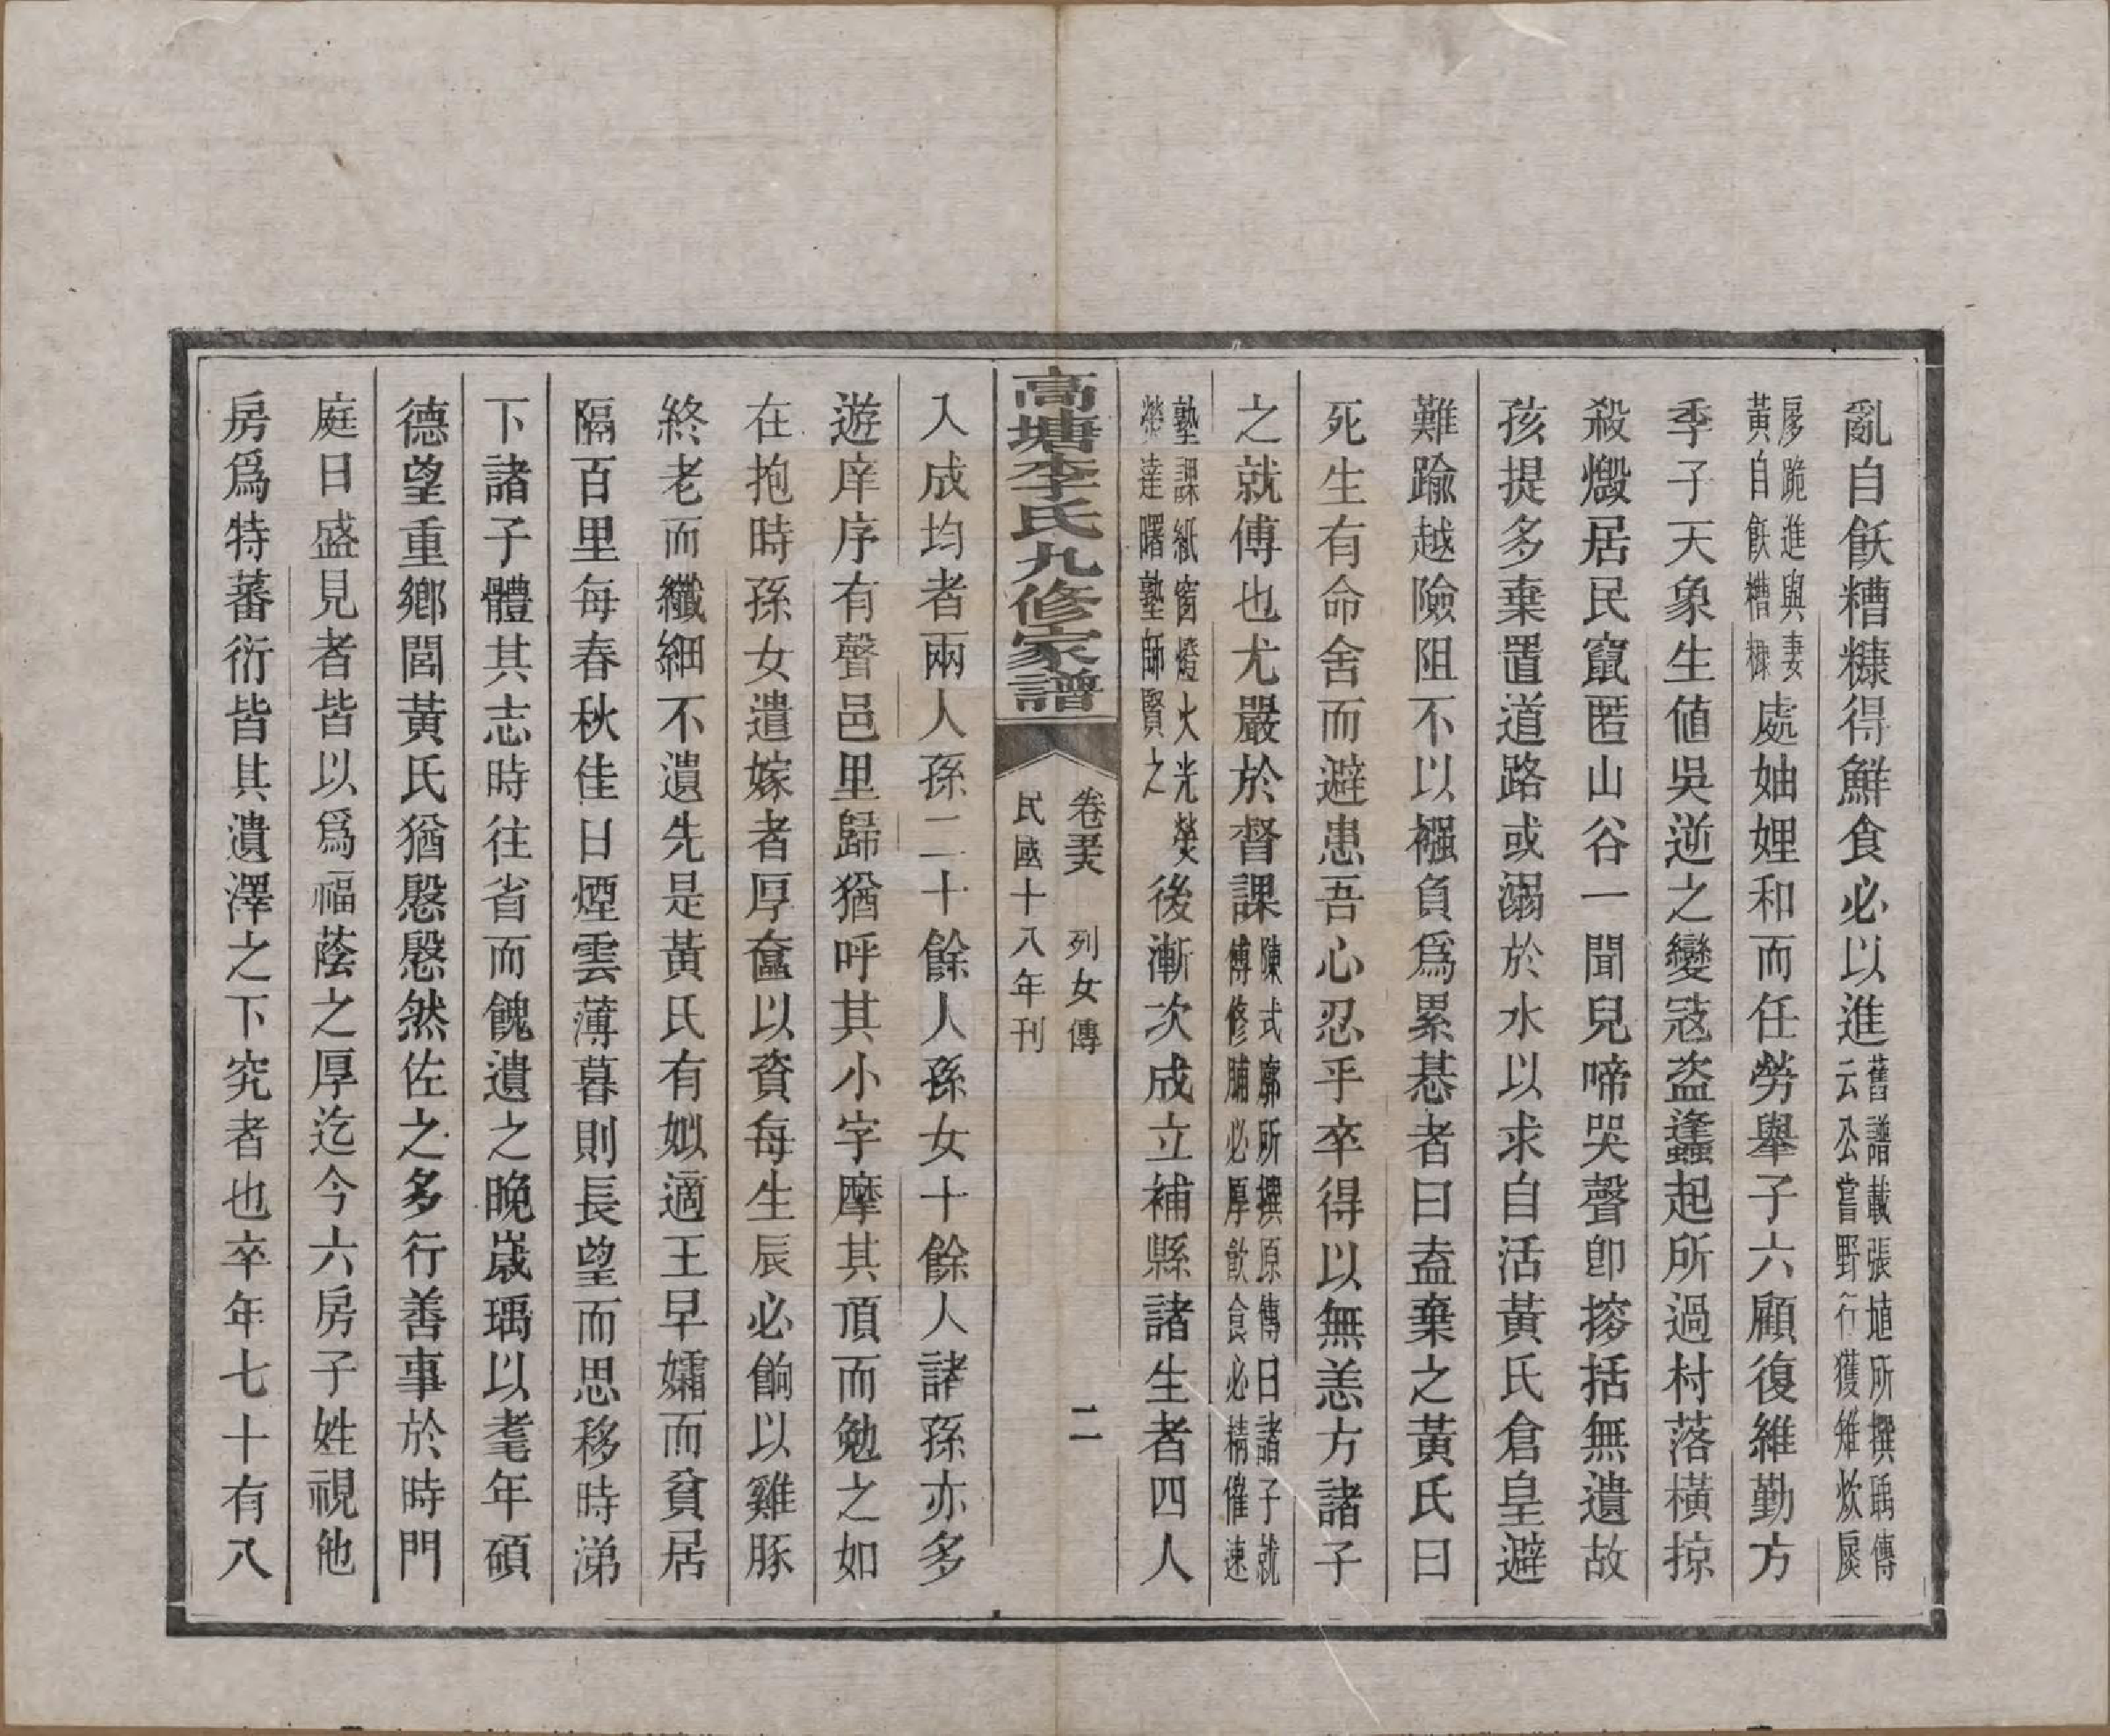 亂自飫糟糠得鮮食必以進舊譜載張埴所撰瑀傳云公嘗野行獲雉炊扊
扅跪進與妻黃自飫糟糠處妯娌和而任勞舉子六顧復維勤方
季子天象生値吳逆之變寇盜蠭起所過村落橫掠
殺燬居民竄匿山谷一聞兒啼哭聲卽搜括無遺故
孩提多棄置道路或溺於水以求自活黃氏倉皇避
難踰越險阻不以襁負爲累惎者曰盍棄之黃氏曰
死生有命舍而避患吾心忍乎卒得以無恙方諸子
之就傅也尤嚴於督課陳式廓所撰原傳曰諸子就傅修脯必厚飲食必精催速
塾課紙窗燈火光熒熒達曙塾師賢之後漸次成立補縣諸生者四人
高塘李氏九修家譜
卷 列女傳
二
民國十八年刊
入成均者兩人孫二十餘人孫女十餘人諸孫亦多
遊庠序有聲邑里歸猶呼其小字摩其頂而勉之如
在抱時孫女遣嫁者厚奩以資每生辰必餉以雞豚
終老而纖細不遺先是黃氏有姒適王早孀而貧居
隔百里每春秋佳日煙雲薄暮則長望而思移時涕
下諸子體其志時往省而餽遺之晚嵗瑀以耄年碩
德望重鄉閭黃氏猶慇慇然佐之多行善事於時門
庭日盛見者皆以爲福蔭之厚迄今六房子姓視他
房爲特蕃衍皆其遺澤之下究者也卒年七十有八